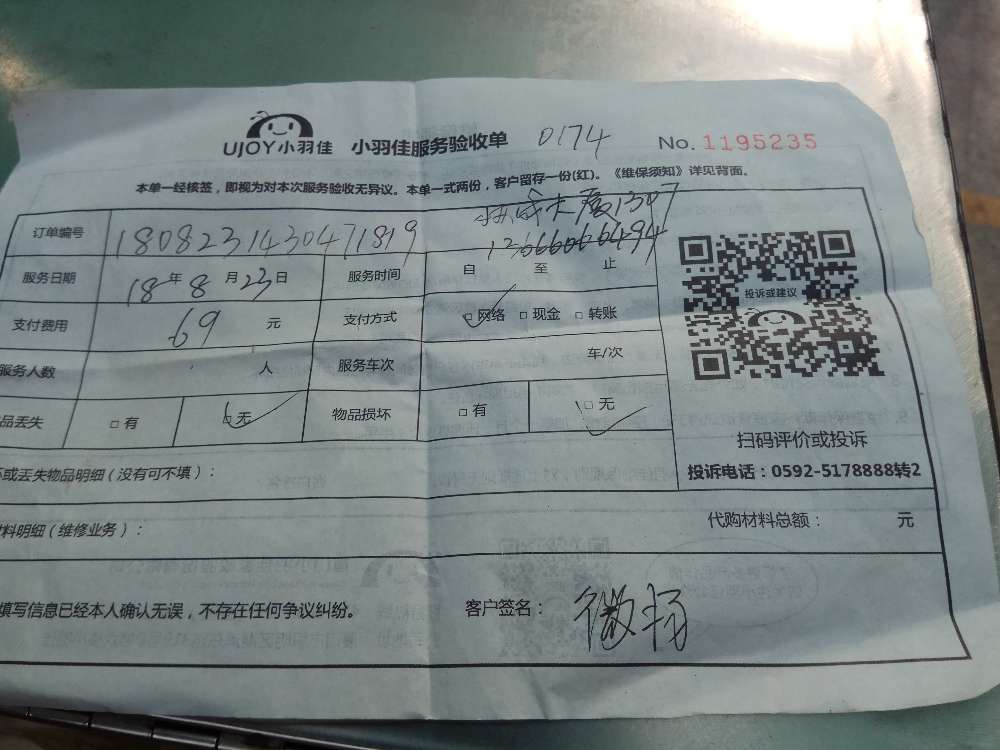 UJOY小羽佳 小羽佳服务验收单 0174 No. 1195235
本单一经核签，即视为对本次服务验收无异议。本单一式两份，客户留存一份(红)。《维保须知》详见背面。
大厦1307
订单编号 1808231430471819 13666066494
服务日期 18年8月23日 服务时间 自 至 止
投诉或建议
支付费用 69 元 支付方式 □网络 □现金 □转账
服务人数 人 服务车次 车/次
品丢失 □有 □无 物品损坏 □有 □无
扫码评价或投诉
投诉电话：0592-5178888转2
或丢失物品明细（没有可不填）：
料明细（维修业务）： 代购材料总额： 元
填写信息已经本人确认无误，不存在任何争议纠纷。 客户签名：